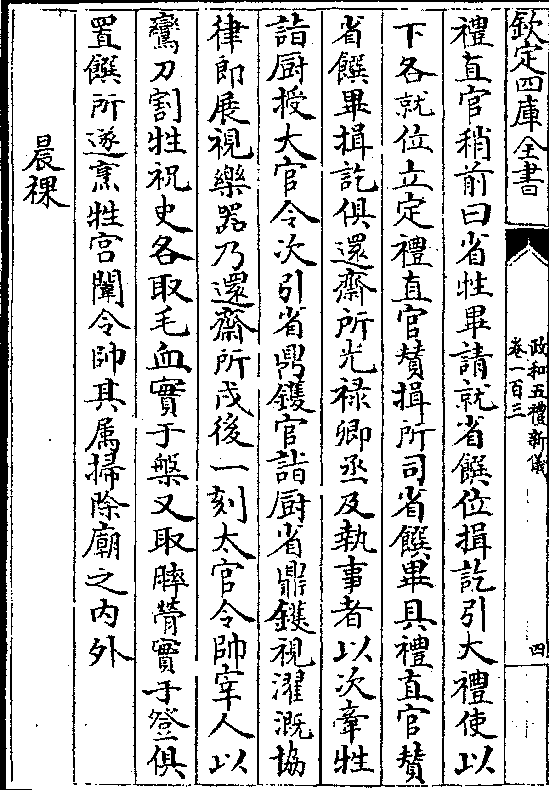 欽定四庫全書
政和五禮新儀
卷一百三
四
禮直官稍前曰省牲畢請就省饌位揖訖引大禮使以
下各就位立定禮直官贊揖所司省饌畢具禮直官贊
省饌畢揖訖俱還齋所光禄卿丞及執事者以次牽牲
詣厨授大官令次引省鼎鑊官詣厨省鼎鑊視濯溉協
律郎展視樂器乃還齋所戌後一刻太官令帥宰人以
鸞刀割牲祝史各取毛血實于槃又取膟膋實于登俱
置饌所遂烹牲宫闈令帥其属掃除廟之内外
晨祼